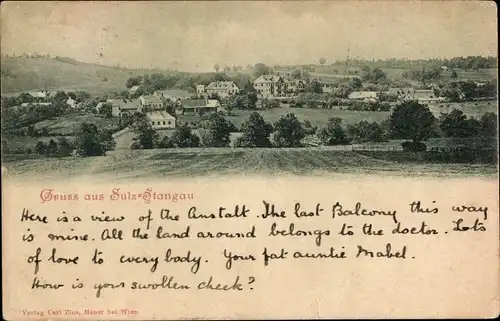 Gruss aus Sulz-Stangau
Here is a view of the Anstalt. The last Balcony this way
is mine. All the land around belongs to the doctor. Lots
of love to every body. Your fat auntie Mabel.
How is yous swollen cheek?
Verlag Carl Zius, Mauer bei Wien